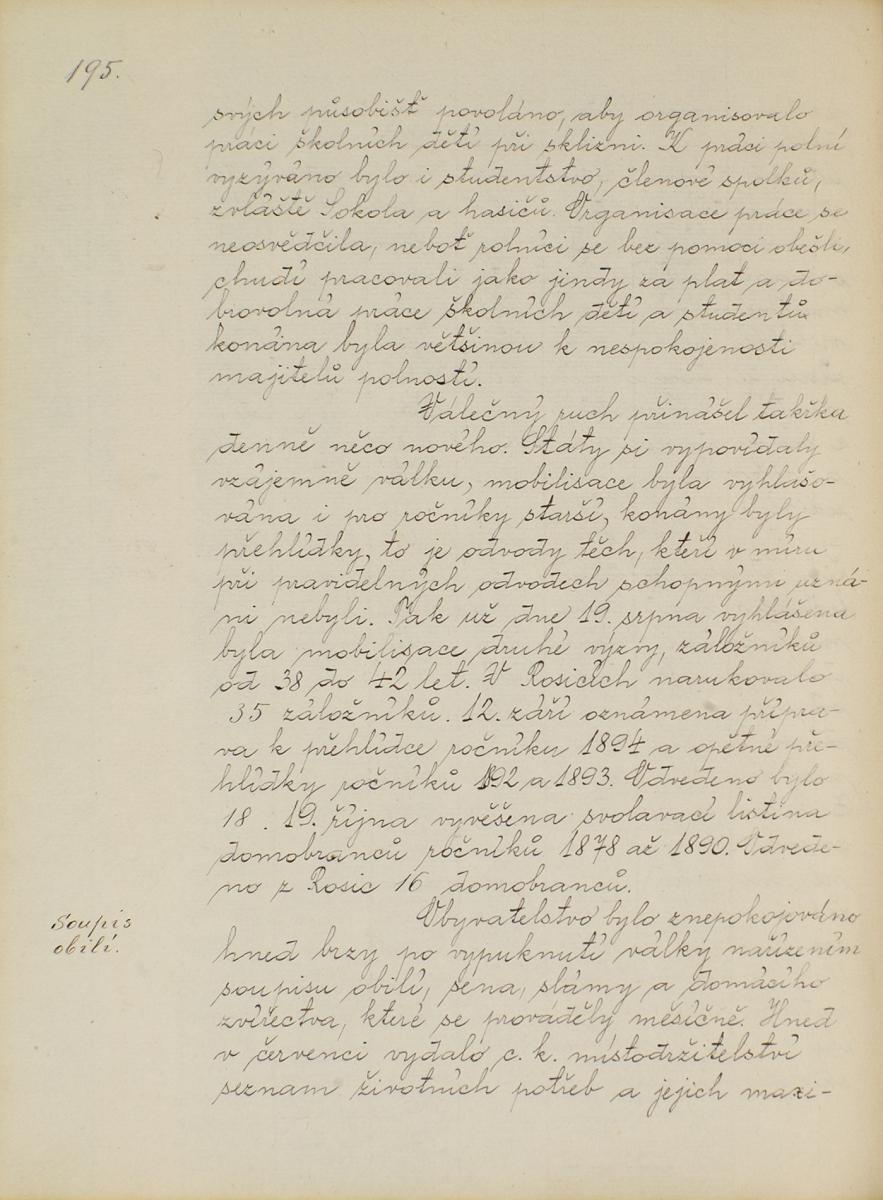 195.
svých působišť povoláno, aby organisovalo
práci školních dětí při sklizni. K práci polní
vyzýváno bylo i studentstvo, členové spolků,
zvláště Sokola a hasičů. Organisace práce se
neosvědčila, neboť rolníci se bez pomoci obešli,
chudí pracovali jako jindy za plat a do-
brovolná práce školních dětí a studentů
konána byla většinou k nespokojenosti
majitelů polností.
Válečný ruch přinášel takřka
denně něco nového. Státy si vypovídaly
vzájemně válku, mobilisace byla vyhlašo-
vána i pro ročníky starší, konány byly
přehlídky, to je odvody těch, kteří v míru
při pravidelných odvodech schopnými uzná-
ni nebyli. Tak už dne 19. srpna vyhlášena
byla mobilisace druhé výzvy, záložníků
od 38 do 42 let. V Rosicích narukovalo
35 záložníků. 12. září oznámena přípra-
va k přehlídce ročníku 1894 a opětné pře-
hlídky ročníků 192 a 1893. Odvedeno bylo
18. 19. října vyvěšena svolavací listina
domobranců ročníků 1878 až 1890. Odvede-
no z Rosic 16 domobranců.
Soupis
obilí.
Obyvatelstvo bylo znepokojováno
hned brzy po vypuknutí války nařízením
soupisu obilí, sena, slámy a domácího
zvířectva, které se prováděly měsíčně. Hned
v červenci vydalo c. k. místodržitelství
seznam životních potřeb a jejich maxi-